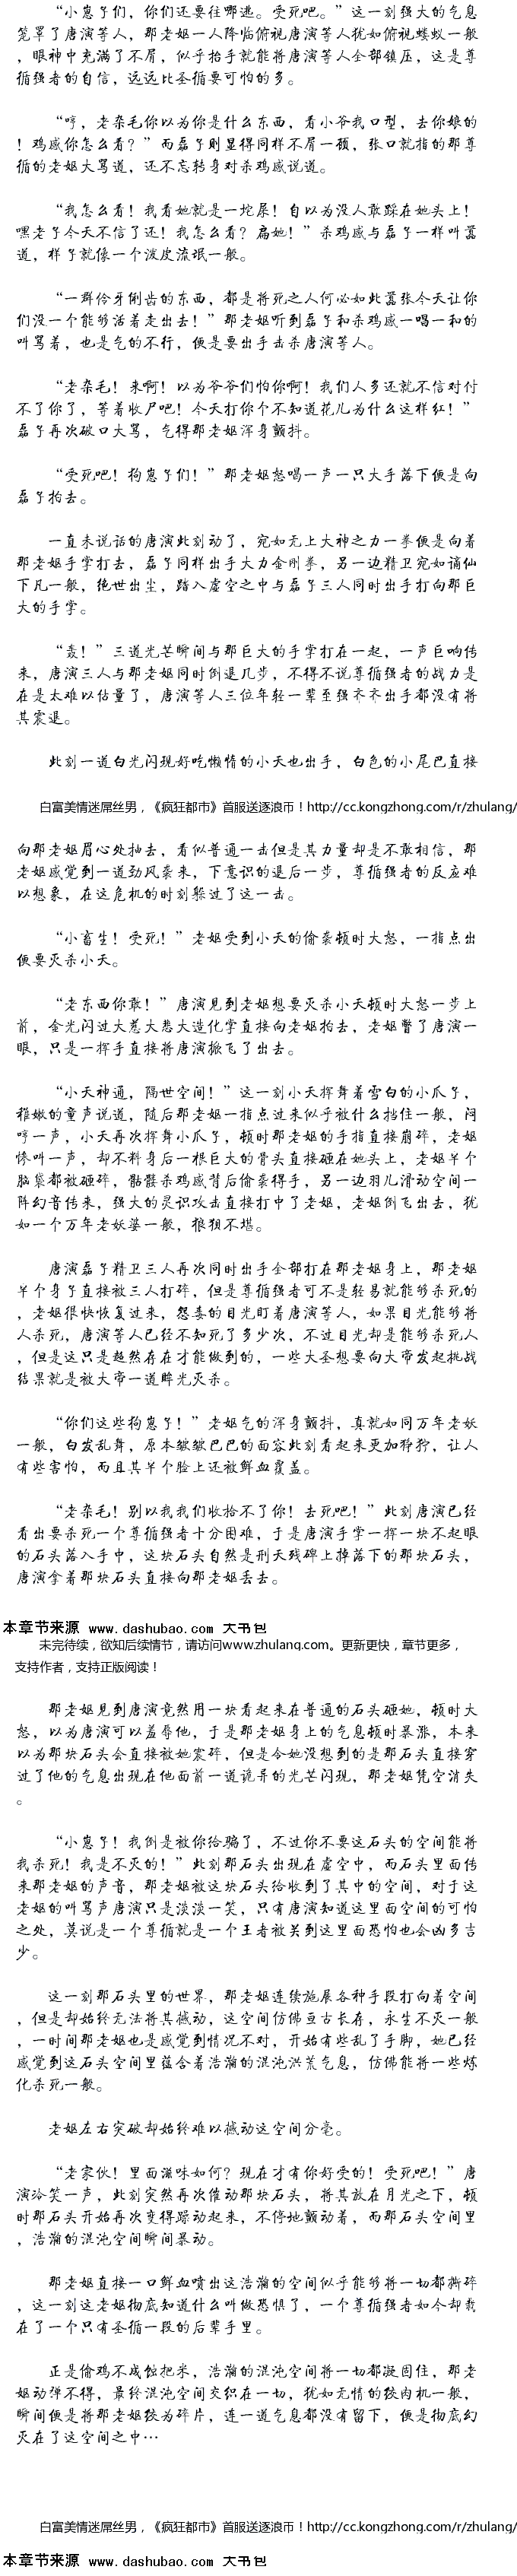 “小崽子们，你们还要往哪逃。受死吧。”这一刻强大的气息
笼罩了唐演等人，那老妪一人降临俯视唐演等人犹如俯视蝼蚁一般
，眼神中充满了不屑，似乎抬手就能将唐演等人全部镇压，这是尊
循强者的自信，远远比圣循要可怕的多。
“哼，老杂毛你以为你是什么东西，看小爷我口型，去你娘的
！鸡感你怎么看？”而磊子则显得同样不屑一顾，张口就指的那尊
循的老妪大骂道，还不忘转身对杀鸡感说道。
“我怎么看！我看她就是一坨屎！自以为没人敢踩在她头上！
嘿老子今天不信了还！我怎么看？扁她！”杀鸡感与磊子一样叫嚣
道，样子就像一个泼皮流氓一般。
“一群伶牙俐齿的东西，都是将死之人何必如此嚣张今天让你
们没一个能够活着走出去！”那老妪听到磊子和杀鸡感一唱一和的
叫骂着，也是气的不行，便是要出手击杀唐演等人。
“老杂毛！来啊！以为爷爷们怕你啊！我们人多还就不信对付
不了你了，等着收尸吧！今天打你个不知道花儿为什么这样红！”
磊子再次破口大骂，气得那老妪浑身颤抖。
“受死吧！狗崽子们！”那老妪怒喝一声一只大手落下便是向
磊子拍去。
一直未说话的唐演此刻动了，宛如无上大神之力一拳便是向着
那老妪手掌打去，磊子同样出手大力金刚拳，另一边精卫宛如谪仙
下凡一般，绝世出尘，踏入虚空之中与磊子三人同时出手打向那巨
大的手掌。
“轰！”三道光芒瞬间与那巨大的手掌打在一起，一声巨响传
来，唐演三人与那老妪同时倒退几步，不得不说尊循强者的战力是
在是太难以估量了，唐演等人三位年轻一辈至强齐齐出手都没有将
其震退。
此刻一道白光闪现好吃懒惰的小天也出手，白色的小尾巴直接
白富美情迷屌丝男，《疯狂都市》首服送逐浪币！http://cc.kongzhong.com/r/zhulang/
向那老妪眉心处抽去，看似普通一击但是其力量却是不敢相信，那
老妪感觉到一道劲风袭来，下意识的退后一步，尊循强者的反应难
以想象，在这危机的时刻躲过了这一击。
“小畜生！受死！”老妪受到小天的偷袭顿时大怒，一指点出
便要灭杀小天。
“老东西你敢！”唐演见到老妪想要灭杀小天顿时大怒一步上
前，金光闪过大惹大悲大造化掌直接向老妪拍去，老妪瞥了唐演一
眼，只是一挥手直接将唐演掀飞了出去。
“小天神通，隔世空间！”这一刻小天挥舞着雪白的小爪子，
稚嫩的童声说道，随后那老妪一指点过来似乎被什么挡住一般，闷
哼一声，小天再次挥舞小爪子，顿时那老妪的手指直接崩碎，老妪
惨叫一声，却不料身后一根巨大的骨头直接砸在她头上，老妪半个
脑袋都被砸碎，骷髅杀鸡感背后偷袭得手，另一边羽儿滑动空间一
阵幻音传来，强大的灵识攻击直接打中了老妪，老妪倒飞出去，犹
如一个万年老妖婆一般，狼狈不堪。
唐演磊子精卫三人再次同时出手全部打在那老妪身上，那老妪
半个身子直接被三人打碎，但是尊循强者可不是轻易就能够杀死的
，老妪很快恢复过来，怨毒的目光盯着唐演等人，如果目光能够将
人杀死，唐演等人已经不知死了多少次，不过目光却是能够杀死人
，但是这只是超然存在才能做到的，一些大圣想要向大帝发起挑战
结果就是被大帝一道眸光灭杀。
“你们这些狗崽子！”老妪气的浑身颤抖，真就如同万年老妖
一般，白发乱舞，原本皱皱巴巴的面容此刻看起来更加狰狞，让人
有些害怕，而且其半个脸上还被鲜血覆盖。
“老杂毛！别以我我们收拾不了你！去死吧！”此刻唐演已经
看出要杀死一个尊循强者十分困难，于是唐演手掌一挥一块不起眼
的石头落入手中，这块石头自然是刑天残碑上掉落下的那块石头，
唐演拿着那块石头直接向那老妪丢去。
本章节来源 www.dashubao.com 大书包
未完待续，欲知后续情节，请访问www.zhulang.com。更新更快，章节更多，
支持作者，支持正版阅读！
那老妪见到唐演竟然用一块看起来在普通的石头砸她，顿时大
怒，以为唐演可以羞辱他，于是那老妪身上的气息顿时暴涨，本来
以为那块石头会直接被她震碎，但是令她没想到的是那石头直接穿
过了他的气息出现在他面前一道诡异的光芒闪现，那老妪凭空消失
。
“小崽子！我倒是被你给骗了，不过你不要这石头的空间能将
我杀死！我是不灭的！”此刻那石头出现在虚空中，而石头里面传
来那老妪的声音，那老妪被这块石头给收到了其中的空间，对于这
老妪的叫骂声唐演只是淡淡一笑，只有唐演知道这里面空间的可怕
之处，莫说是一个尊循就是一个王者被关到这里面恐怕也会凶多吉
少。
这一刻那石头里的世界，那老妪连续施展各种手段打向着空间
，但是却始终无法将其撼动，这空间仿佛亘古长存，永生不灭一般
，一时间那老妪也是感觉到情况不对，开始有些乱了手脚，她已经
感觉到这石头空间里蕴含着浩瀚的混沌洪荒气息，仿佛能将一些炼
化杀死一般。
老妪左右突破却始终难以撼动这空间分毫。
“老家伙！里面滋味如何？现在才有你好受的！受死吧！”唐
演冷笑一声，此刻突然再次催动那块石头，将其放在月光之下，顿
时那石头开始再次变得躁动起来，不停地颤动着，而那石头空间里
，浩瀚的混沌空间瞬间暴动。
那老妪直接一口鲜血喷出这浩瀚的空间似乎能够将一切都撕碎
，这一刻这老妪彻底知道什么叫做恐惧了，一个尊循强者如今却栽
在了一个只有圣循一段的后辈手里。
正是偷鸡不成蚀把米，浩瀚的混沌空间将一切都凝固住，那老
妪动弹不得，最终混沌空间交织在一切，犹如无情的绞肉机一般，
瞬间便是将那老妪绞为碎片，连一道气息都没有留下，便是彻底幻
灭在了这空间之中…
白富美情迷屌丝男，《疯狂都市》首服送逐浪币！http://cc.kongzhong.com/r/zhulang/
本章节来源 www.dashubao.com 大书包